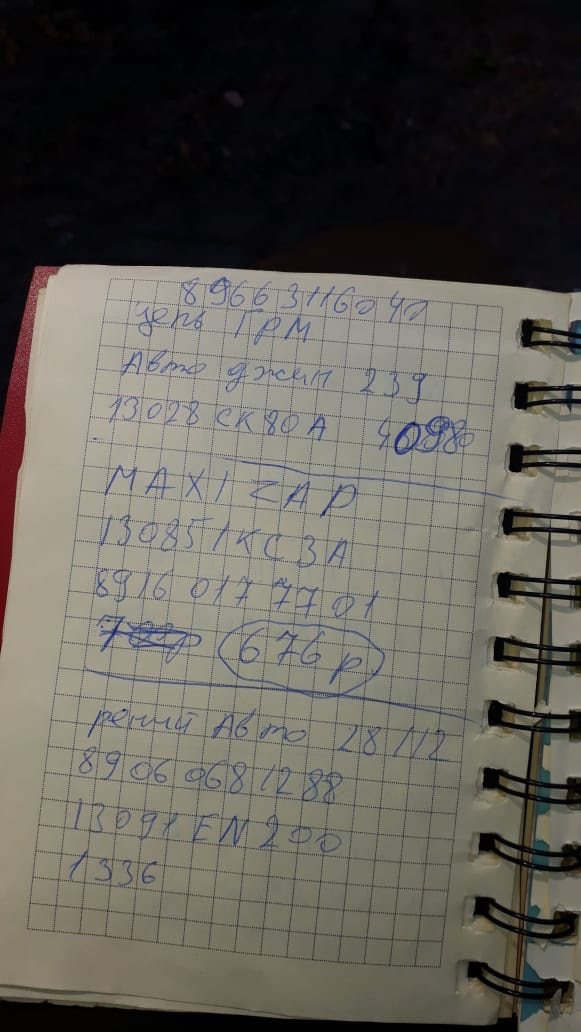 89663116040
цепь ГРМ
Авто джин 239
13028 CK80A 4098
MAXI ZAP
130851KC3A
8916 017 77 01
676 р
Авто 28/112
8906 068 1288
13091 EN 200
1336